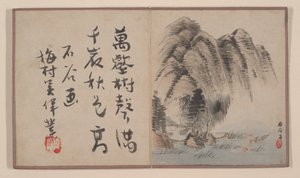 萬壑樹聲滿
千崖秋色高
石谷画
梅村吳偉業